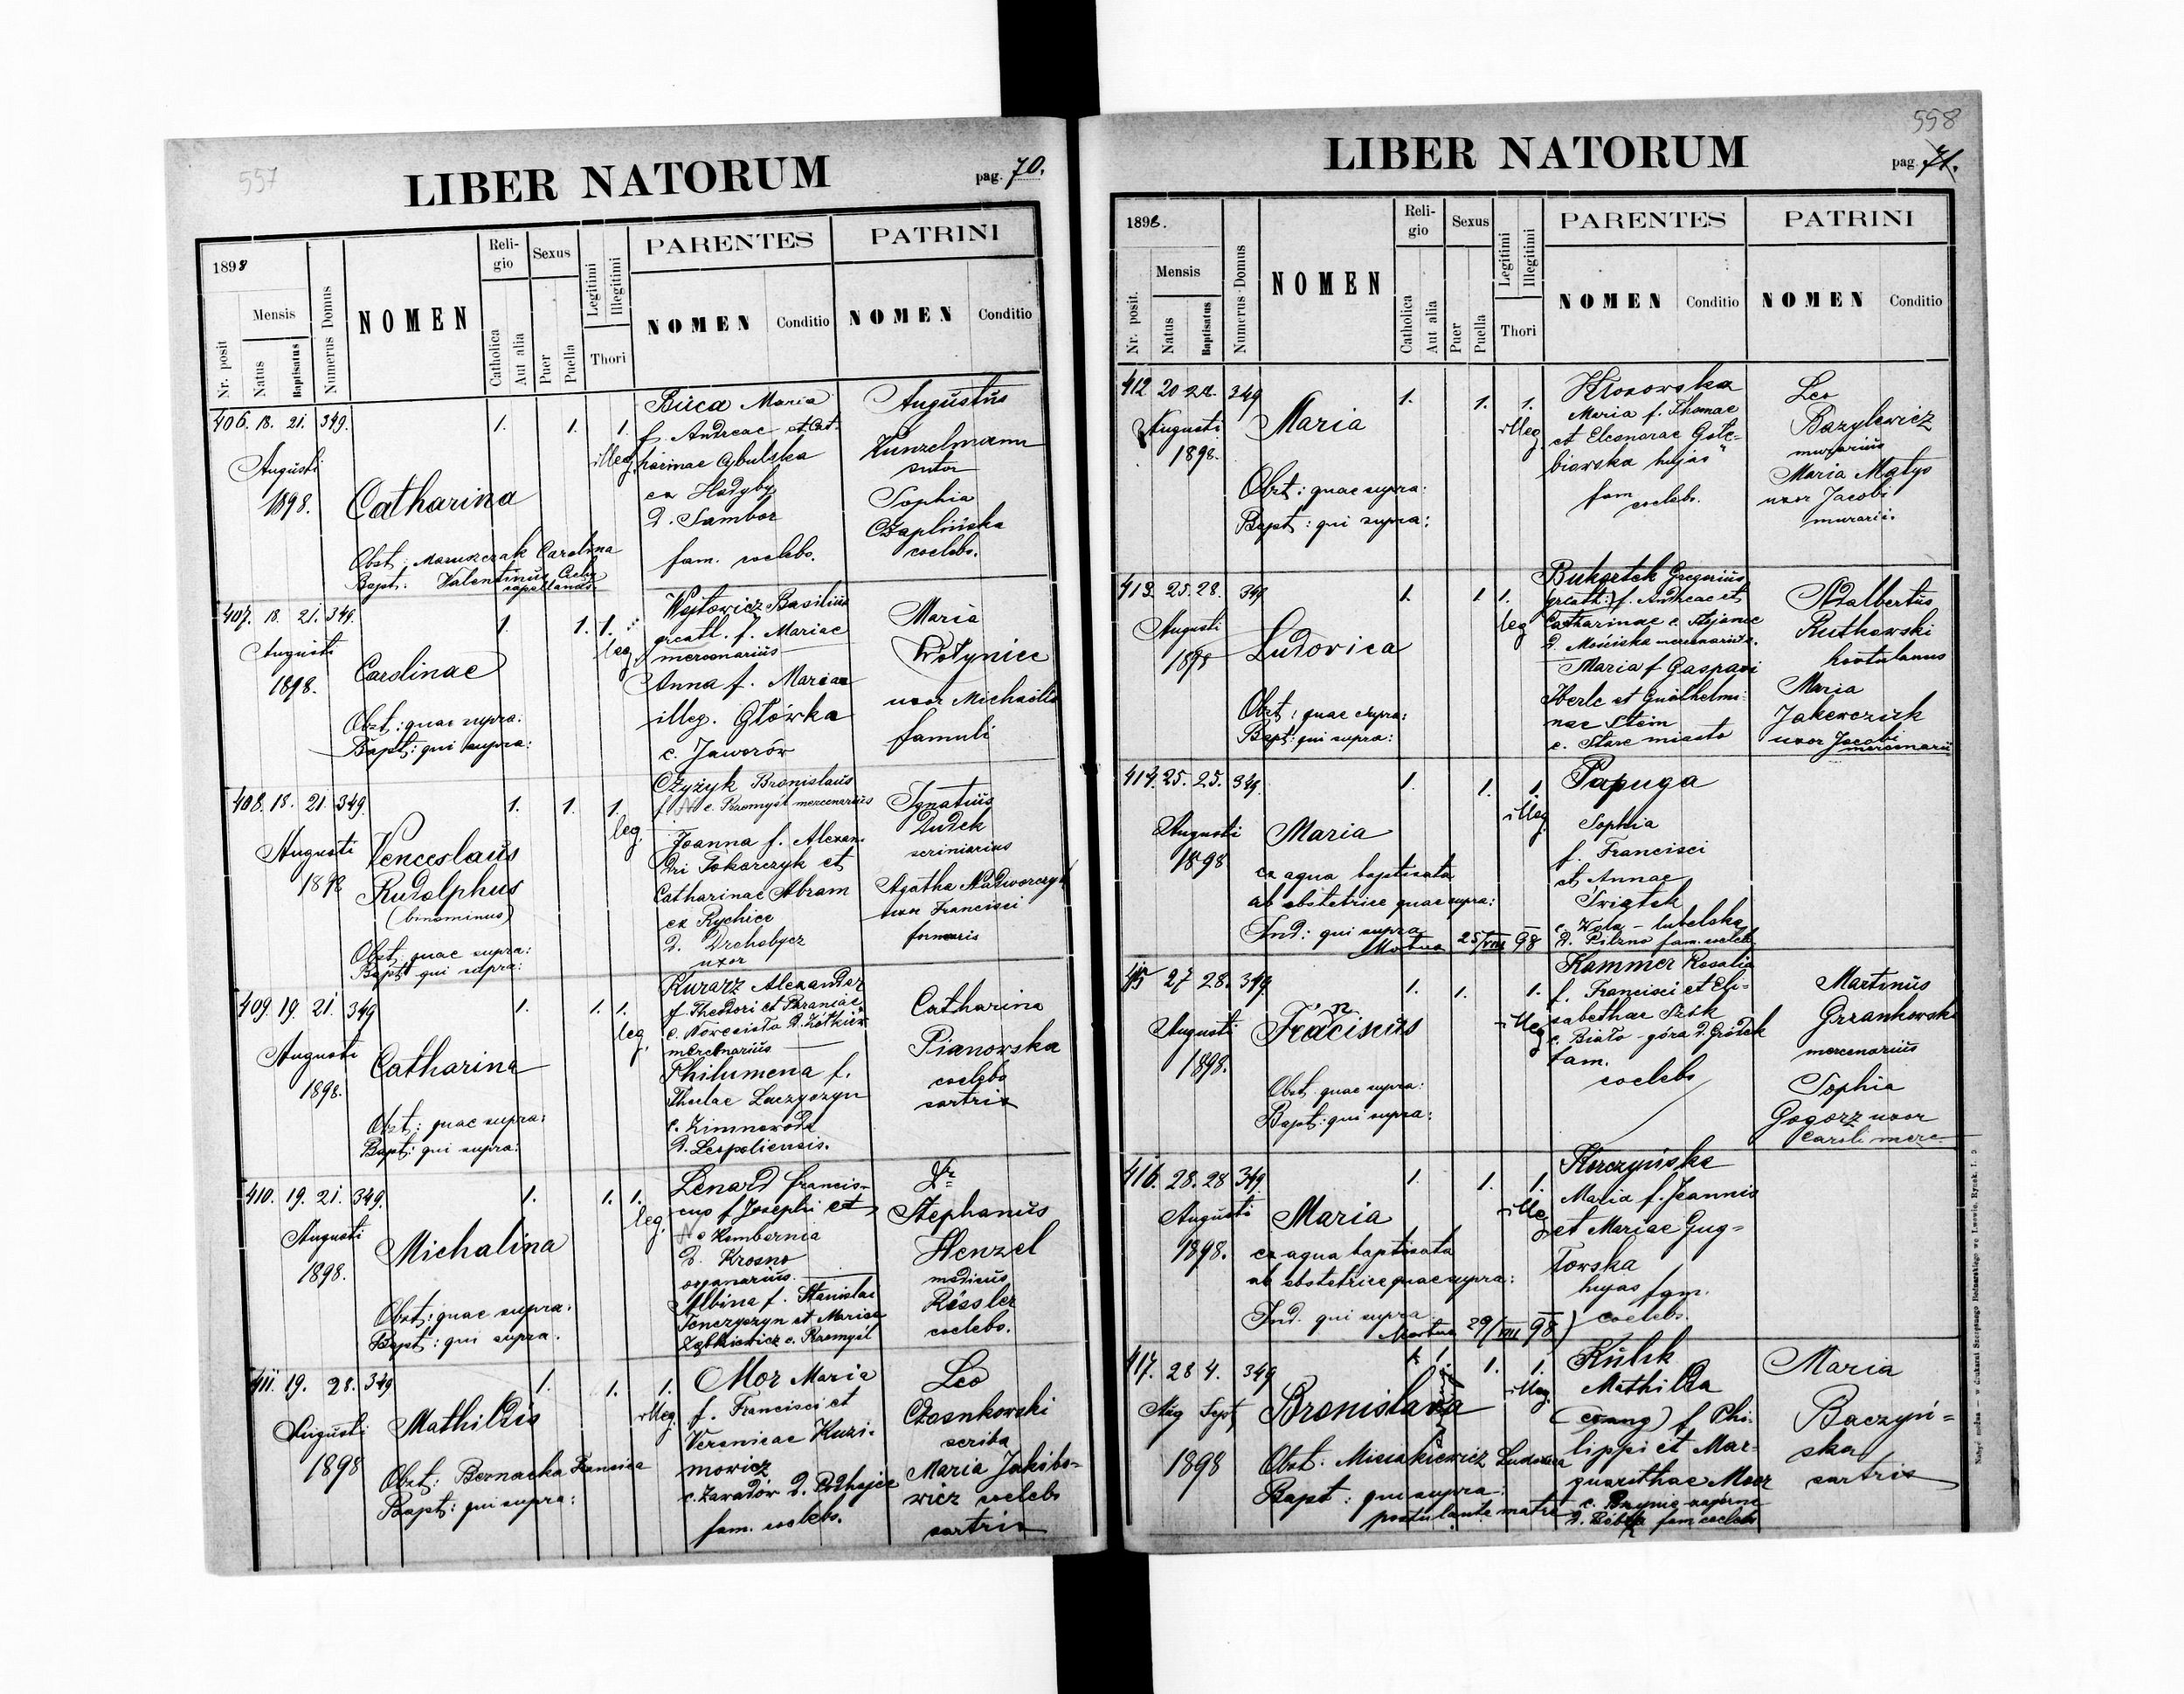 557
LIBER NATORUM
pag. 70.
1898
Nr. posit
Mensis
Natus
Baptisatus
Numerus Domus
NOMEN
Reli-
gio
Catholica
Aut alia
Sexus
Puer
Puella
Legitimi
Illegitimi
Thori
PARENTES
NOMEN
Conditio
PATRINI
NOMEN
Conditio
406. 18. 21. 349.
Augusti
1898.
Catharina
Obst: Maruszczak Carolina
Bapt: Valentinus Cichy
capellanus
1. 1. 1.
illeg.
Buca Maria
f. Andreae et Cat-
harinae Cybulska
ex Hodyby
D. Sambor
fam. coelebs.
Augustus
Kunzelmann
sutor
Sophia
Czaplińska
coelebs.
407. 18. 21. 349.
Augusti
1898.
Carolinae
Obst: quae supra:
Bapt: qui supra:
1. 1. 1.
leg.
Wojtowicz Basilius
gr cath. f. Mariae
mercenarius
Anna f. Mariae
illeg. Główka
e. Jaworów
Maria
Wołyniec
uxor Michaelis
famuli
408. 18. 21. 349.
Augusti
1898
Venceslaus
Rudolphus
(binominus)
Obst: quae supra:
Bapt: qui supra:
1. 1. 1.
leg.
Czyżyk Bronislaus
f. N e. Przemyśl mercenarius
Joanna f. Alexan-
dri Tokarczyk et
Catharinae Abram
ex Rychice
D. Drohobycz
uxor
Ignatius
Dudek
scriniarius
Agatha Nadworczyk
uxor Francisci
409. 19. 21. 349
Augusti
1898.
Catharina
Obst: quae supra:
Bapt: qui supra:
1. 1. 1.
leg.
Kurarz Alexander
f. Theodori et Paraniae
D. Żółkiew
mercenarius
Philumena f.
Theclae Laczyszyn
e. Zimnawoda
D. Leopoliensis.
Catharina
Pianowska
coelebs
sartrix
410. 19. 21. 349.
Augusti
1898.
Michalina
Obst: quae supra:
Bapt: qui supra:
1. 1. 1.
leg.
Lenard Francis-
cus f Josephi et
N e Kombornia
D. Krosno
organarius.
Albina f. Stanislai
Tenczyszyn et Mariae
Ząbkiewicz e. Przemyśl
Dr
Stephanus
Henzel
medicus
Rössler
coelebs.
411. 19. 28. 349
Augusti
1898
Mathildis
Obst: Bernacka Francisca
Bapt: qui supra:
1. 1. 1.
illeg.
Mor Maria
f. Francisci et
Veronicae Kuzi-
mowicz
e. Zawadów D. Podhajce
fam. coelebs.
Leo
Czosnkowski
scriba
Maria Jakóbo-
wicz coelebs
sartrix
558
LIBER NATORUM
pag. 71.
1898.
Nr. posit.
Mensis
Natus
Baptisatus
Numerus Domus
NOMEN
Reli-
gio
Catholica
Aut alia
Sexus
Puer
Puella
Legitimi
Illegitimi
Thori
PARENTES
NOMEN
Conditio
PATRINI
NOMEN
Conditio
412 20 349
Augusti
1898.
Maria
Obst: quae supra:
Bapt: qui supra:
1. 1. 1.
illeg.
Maria f. Thomae
et Eleonorae Gołę-
biowska hujas
fam
coelebs.
Leo
Bazylewicz
murarius
Maria Matys
uxor Jacobi
murarii.
413. 25. 28. 349
Augusti
1898
Ludovica
Obst: quae supra:
Bapt: qui supra:
1. 1 1.
leg
Bukartek Gregorius
(gr cath:) f. Andreae et
Catharinae e. Stojance
D. Mościska mercenarius.
Maria f Gaspari
Iberle et Guilhelmi-
nae Stein
e. Stare miasto
Adalbertus
Rutkowski
hortulanus
Maria
Jakowczuk
uxor Jacobi
mercenarii
414. 25. 25. 349.
Augusti
1898
Maria
ex aqua baptisata
ab obstetrice quae supra:
Ind: qui supra
Mortua 25/VIII 98
1. 1. 1.
illeg.
Papuga
Sophia
f. Francisci
et Annae
Świątek
e. Wola-lubelska
D. Pilzno fam. coeleb
415 27 28. 349.
Augusti
1898.
Franciscus
Obst quae supra:
Bapt: qui supra:
1. 1. 1.
illeg
Kammer Rosalia
f. Francisci et Eli-
sabethae
e. Biało-góra D. Gródek
fam.
coelebs
Martinus
Grzankowski
mercenarius
Sophia
Gogorz uxor
Caroli merc
416. 28. 28 349.
Augusti
1898.
Maria
ex aqua baptisata
ab obstetrice quae supra:
Ind. qui supra
Mortua 29/VIII 98)
1. 1. 1.
illeg
Korczyńska
Maria f. Joannis
et Mariae Gug-
łowska
hujas fam.
coelebs.
417. 28 4. 349
Aug Sept
1898
Bronislava
Obst. Misiakiewicz Ludovica
Bapt: qui supra:
postulante matre
1. 1. 1.
illeg.
Kulik
Mathilda
(evang) f Phi-
lippi et Mar-
garithae
D. Bóbrka fam coelebs
Maria
Baczyń-
ska
sartrix